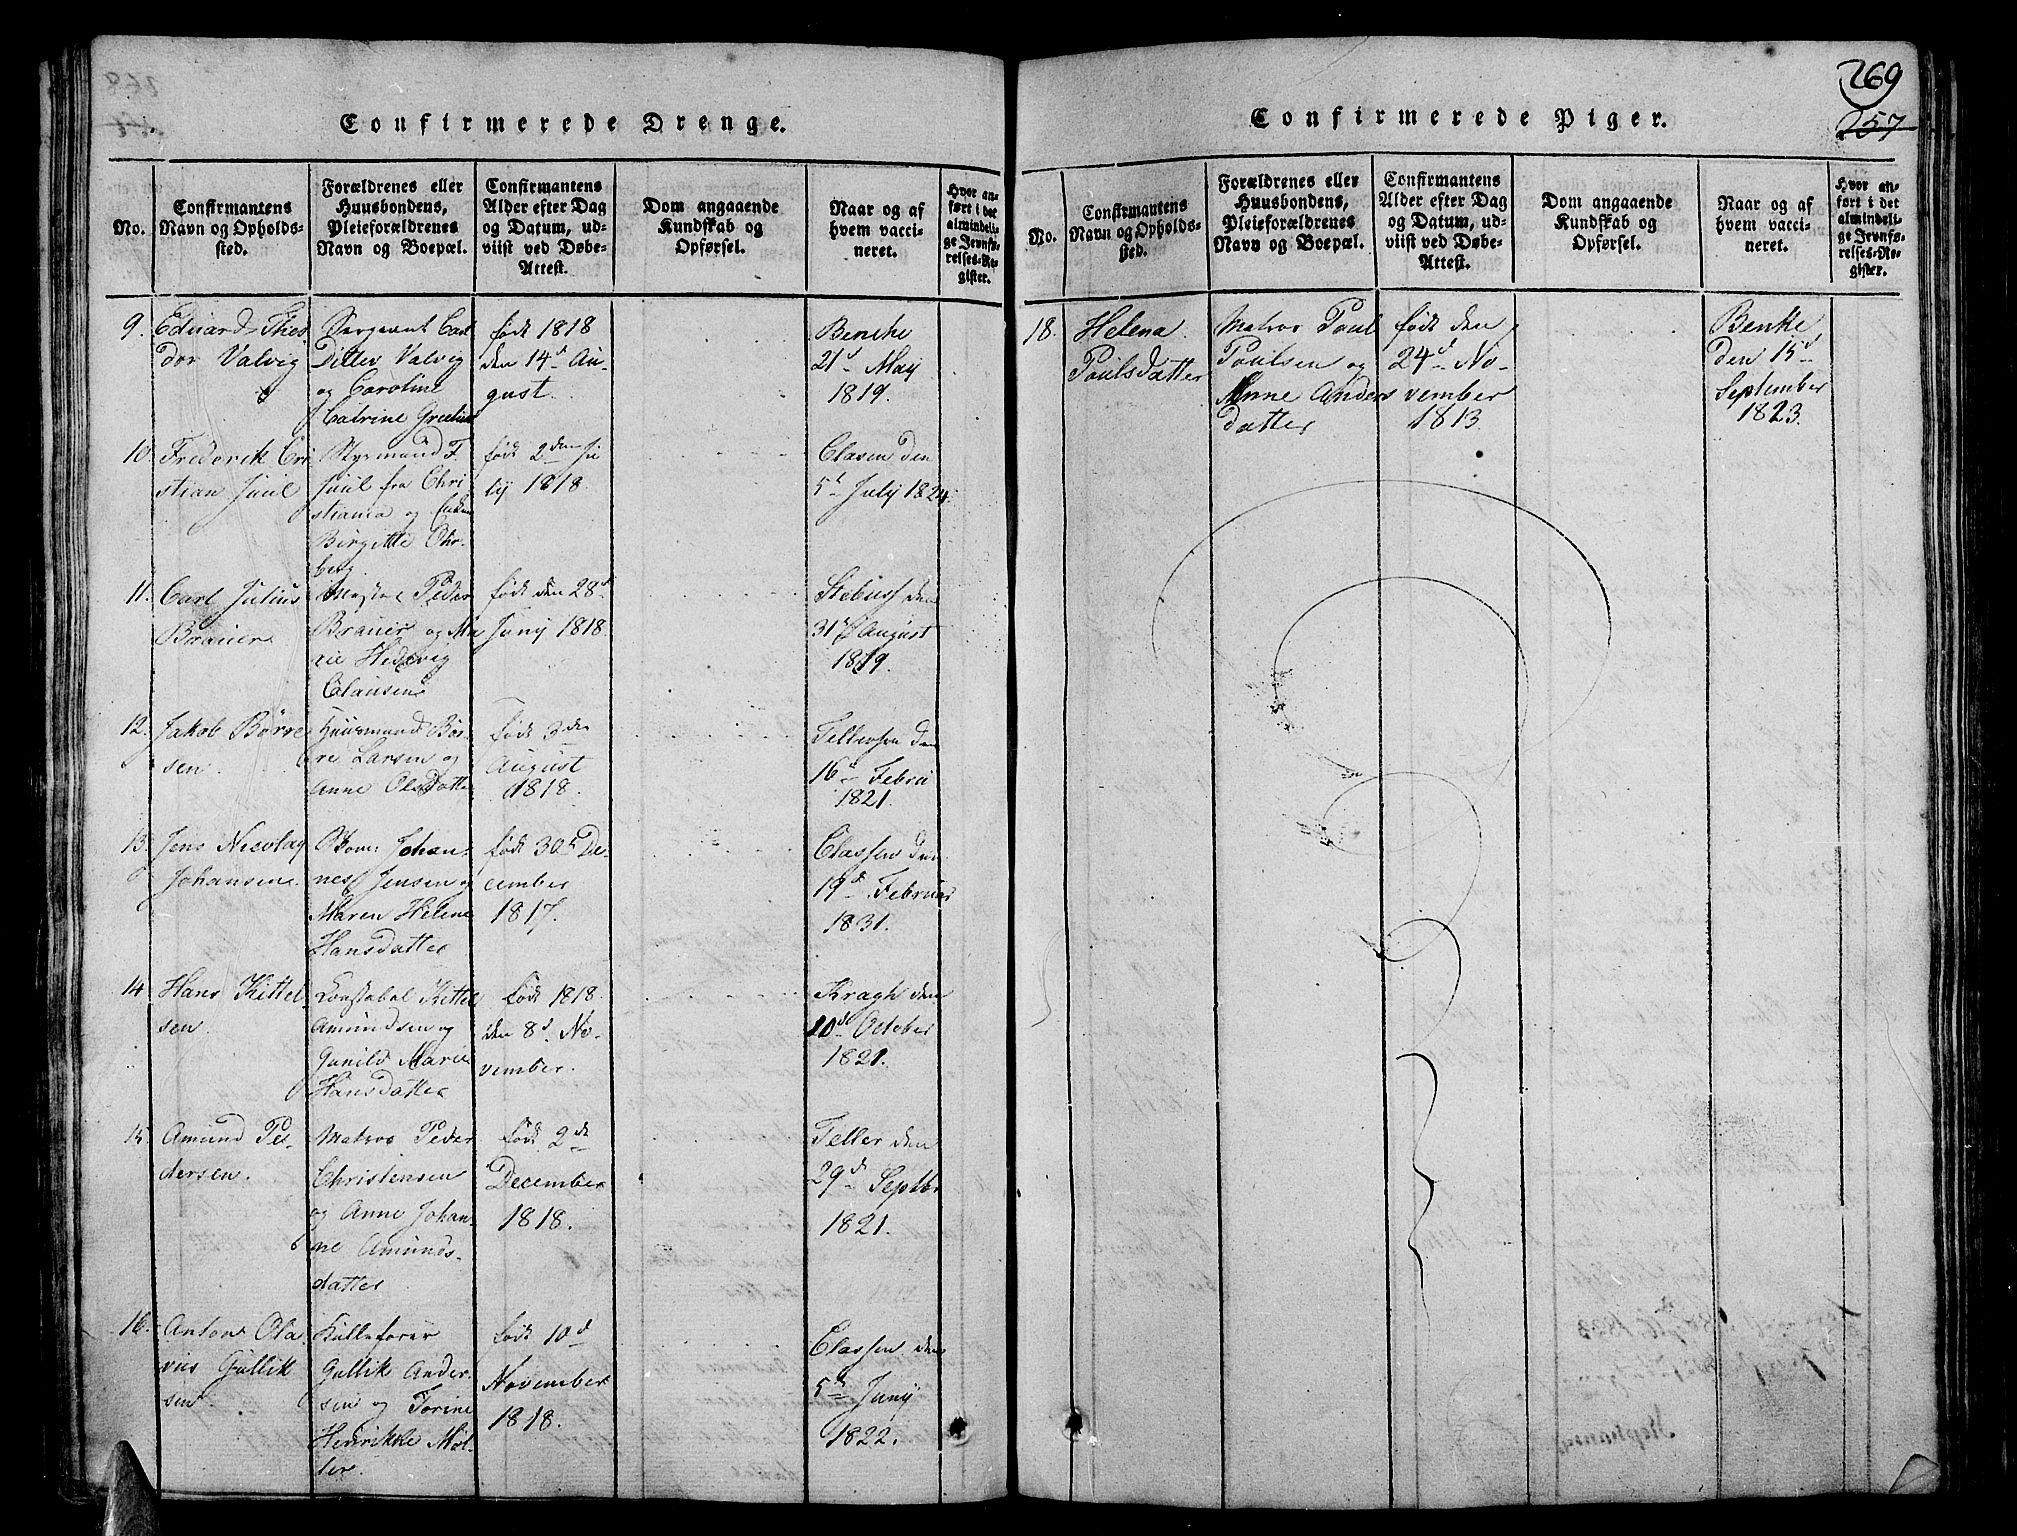 269
257
Confirmerede Drenge.
No.
Confirmantens
Navn og Opholds-
sted.
Forældrenes eller
Huusbondens,
Pleieforældrenes
Navn og Boepæl.
Confirmantens
Alder efter Dag
og Datum, ud-
viist ved Døbe-
Attest.
Dom angaaende
Kundskab og
Opførsel.
Naar og af
hvem vacci-
neret.
Hvor an-
ført i det
almindeli-
ge Jevnfø-
relses-Re-
gister.
9.
Eduard Theo
dor Valvig
Sergeant Carl
Ditlev Valvig
og Caroline
Catrine
født 1818
den 14d Au-
gust.
Benche
21d May
1819.
10.
Frederik Cri
stian Juul
Styrmand F.
Juul fra Chri
stiania og
Birgitte Ohr-
berg.
født 2den Ju
ly 1818.
Clasen den
5t July 1824.
11.
Carl Julius
Brauer
Peder
Brauer og Ma
rie Hedevig
Clausen
født den 28d
Juny 1818.
den
31t August
1819.
12.
Jakob Börre
sen.
Huusmand Bör-
re Larsen og
Anne Olsdatter
født 3die
August
1818.
Tellefsen den
16d Febru
1821.
13.
Jens Nicolay
Johansen.
Johan-
nes Jensen og
Maren Helene
Hansdatter
født 30t De-
cember
1817.
Classen den
19d Februar
1831.
14.
Hans Kittel
sen.
Constabel Kittel
Amundsen og
Gunild Marie
Hansdatter
født 1818.
den 8d No-
vember.
Kragh den
10de October
1821.
15.
Amund Pe-
dersen.
Matros Peder
Christensen
og Anne Johan-
ne Amunds-
datter
født 2de
December
1818.
Teller den
29d Septbr
1821.
16.
Anton Ola
vus Gullik
sen.
Gullik Ander-
sen og Torine
Henrikke Møl-
ler.
født 10d
November
1818.
Classen den
5t Juny
1822.
Confirmerede Piger.
No.
Confirmantens
Navn og Opholds-
sted.
Forældrenes eller
Huusbondens,
Pleieforældrenes
Navn og Boepæl.
Confirmantens
Alder efter Dag
og Datum, ud-
viist ved Døbe-
Attest.
Dom angaaende
Kundskab og
Opførsel.
Naar og af
hvem vacci-
neret.
Hvor an-
ført i det
almindeli-
ge Jevnfø-
relses-Re-
gister.
18.
Helena
Poulsdatter
Matros Poul
Poulsen og
Anne Anders
datter
født den
24d No-
vember
1813.
Benke
den 15d
September
1823.